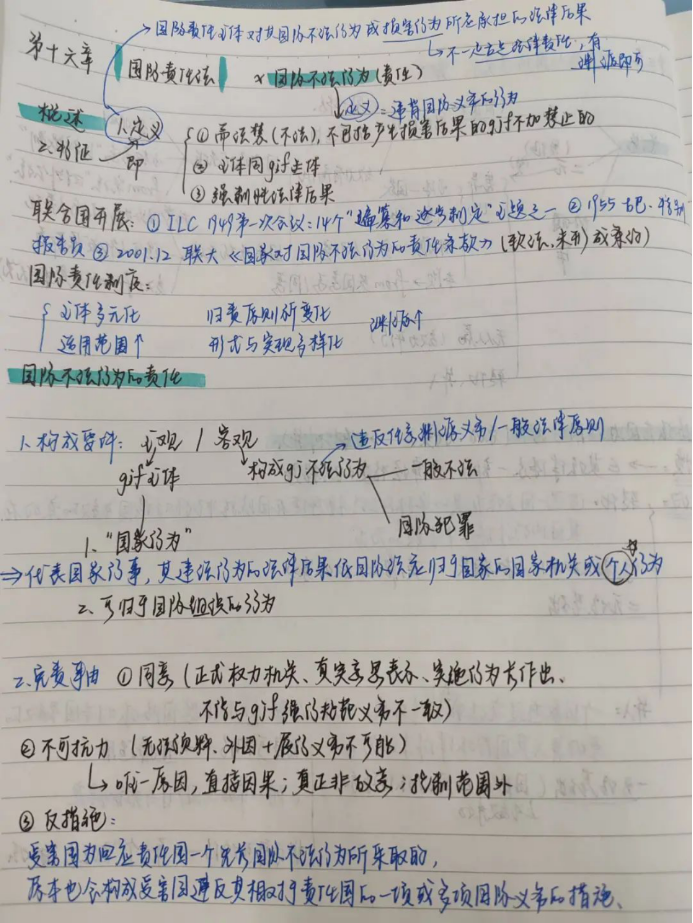 →国际责任主体对其国际不法行为或损害行为所应承担的法律后果
↳不一定是法律责任,有
第十六章 国际责任法 × 国际不法行为(责任)
定义 = 违背国际义务的行为
概述 1.定义 ① 而法禁(不法),不包括产生损害结果的gjf不加禁止的
2.特征 即 ② 主体同gjf主体
③ 强制性法律后果
联合国开展:① ILC 1949第一次会议:14个"编纂和逐步制定"主题之一 ② 1955 古巴·特别
报告员 ③ 2001.12 联大《国家对国际不法行为的责任条款》(软法,未形成条约)
国际责任制度:
主体多元化 归责原则所变化
适用范围↑ 形式与实现多样化
国际不法行为的责任
1.构成要件:主观 / 客观 →违反任意性渊源义务/一般法律原则
gjf主体 构成gj不法行为 一般不法
国际犯罪
1、"国家行为"
⇒代表国家行事,其违法行为的法律后果依国际法应归于国家的国家机关或个人行为
2、可归于国际组织的行为
2.免责事由 ①同意(正式权力机关、真实意思表示、实施行为前作出、
不能与gjf强行规范义务不一致)
②不可抗力(无法预料、外因+履行义务不可能)
↳唯一原因,直接因果;真正非故意;控制范围外
③ 反措施:
受害国为回应责任国一个先前国际不法行为所采取的,
原本也会构成受害国违反其相对于责任国的一项或多项国际义务的措施、